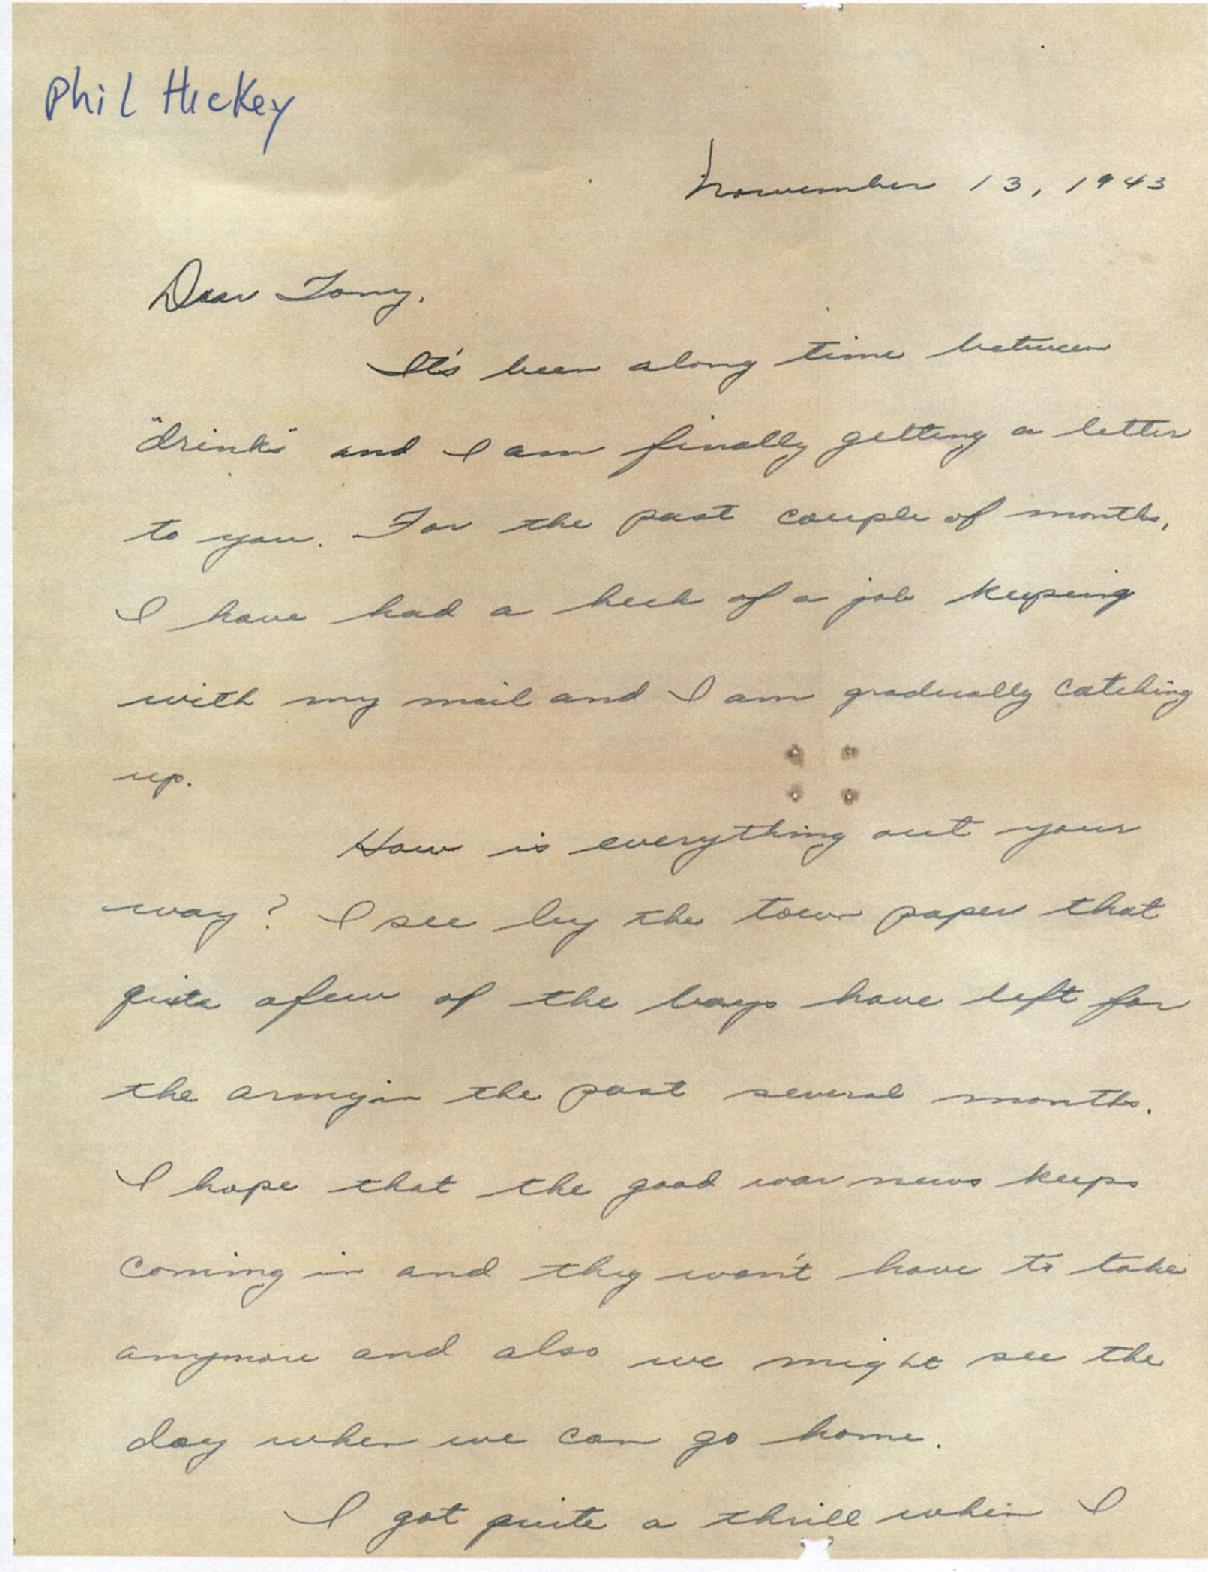 Phil Hickey
November 13, 1943
Dear Tony,
It's been along time between
"drinks" and I am finally getting a letter
to you. For the past couple of months,
I have had a heck of a job keeping
with my mail and I am gradually catching
up.
How is everything out your
way? I see by the town paper that
quite afew of the boys have left for
the army in the past several months.
I hope that the good war news keeps
coming in and they won't have to take
anymore and also we might see the
day when we can go home.
I got quite a thrill when I